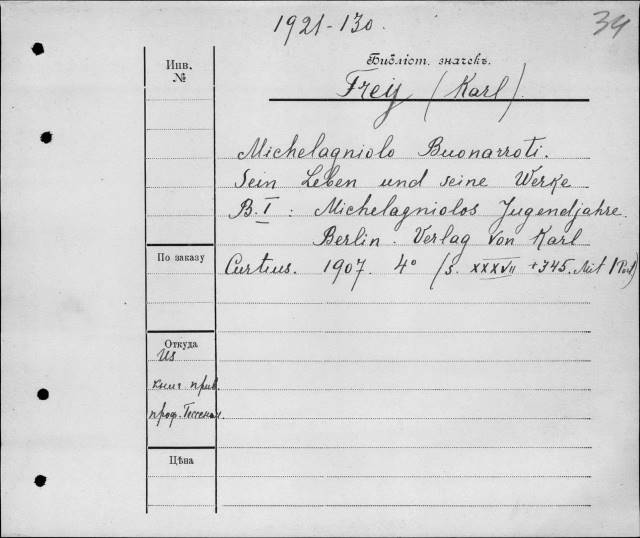 1921-130.
34
Инв.
№
Библіот. значекъ.
Frey (Karl)
Michelagniolo Buonarroti.
Sein Leben und seine Werke
B. I : Michelagniolos Jugendjahre.
Berlin. Verlag von Karl
По заказу
Curtius. 1907. 4° /S. XXXVII + 345. Mit 1 Port)
Откуда
Из
книг. прив.
проф.
Цѣна